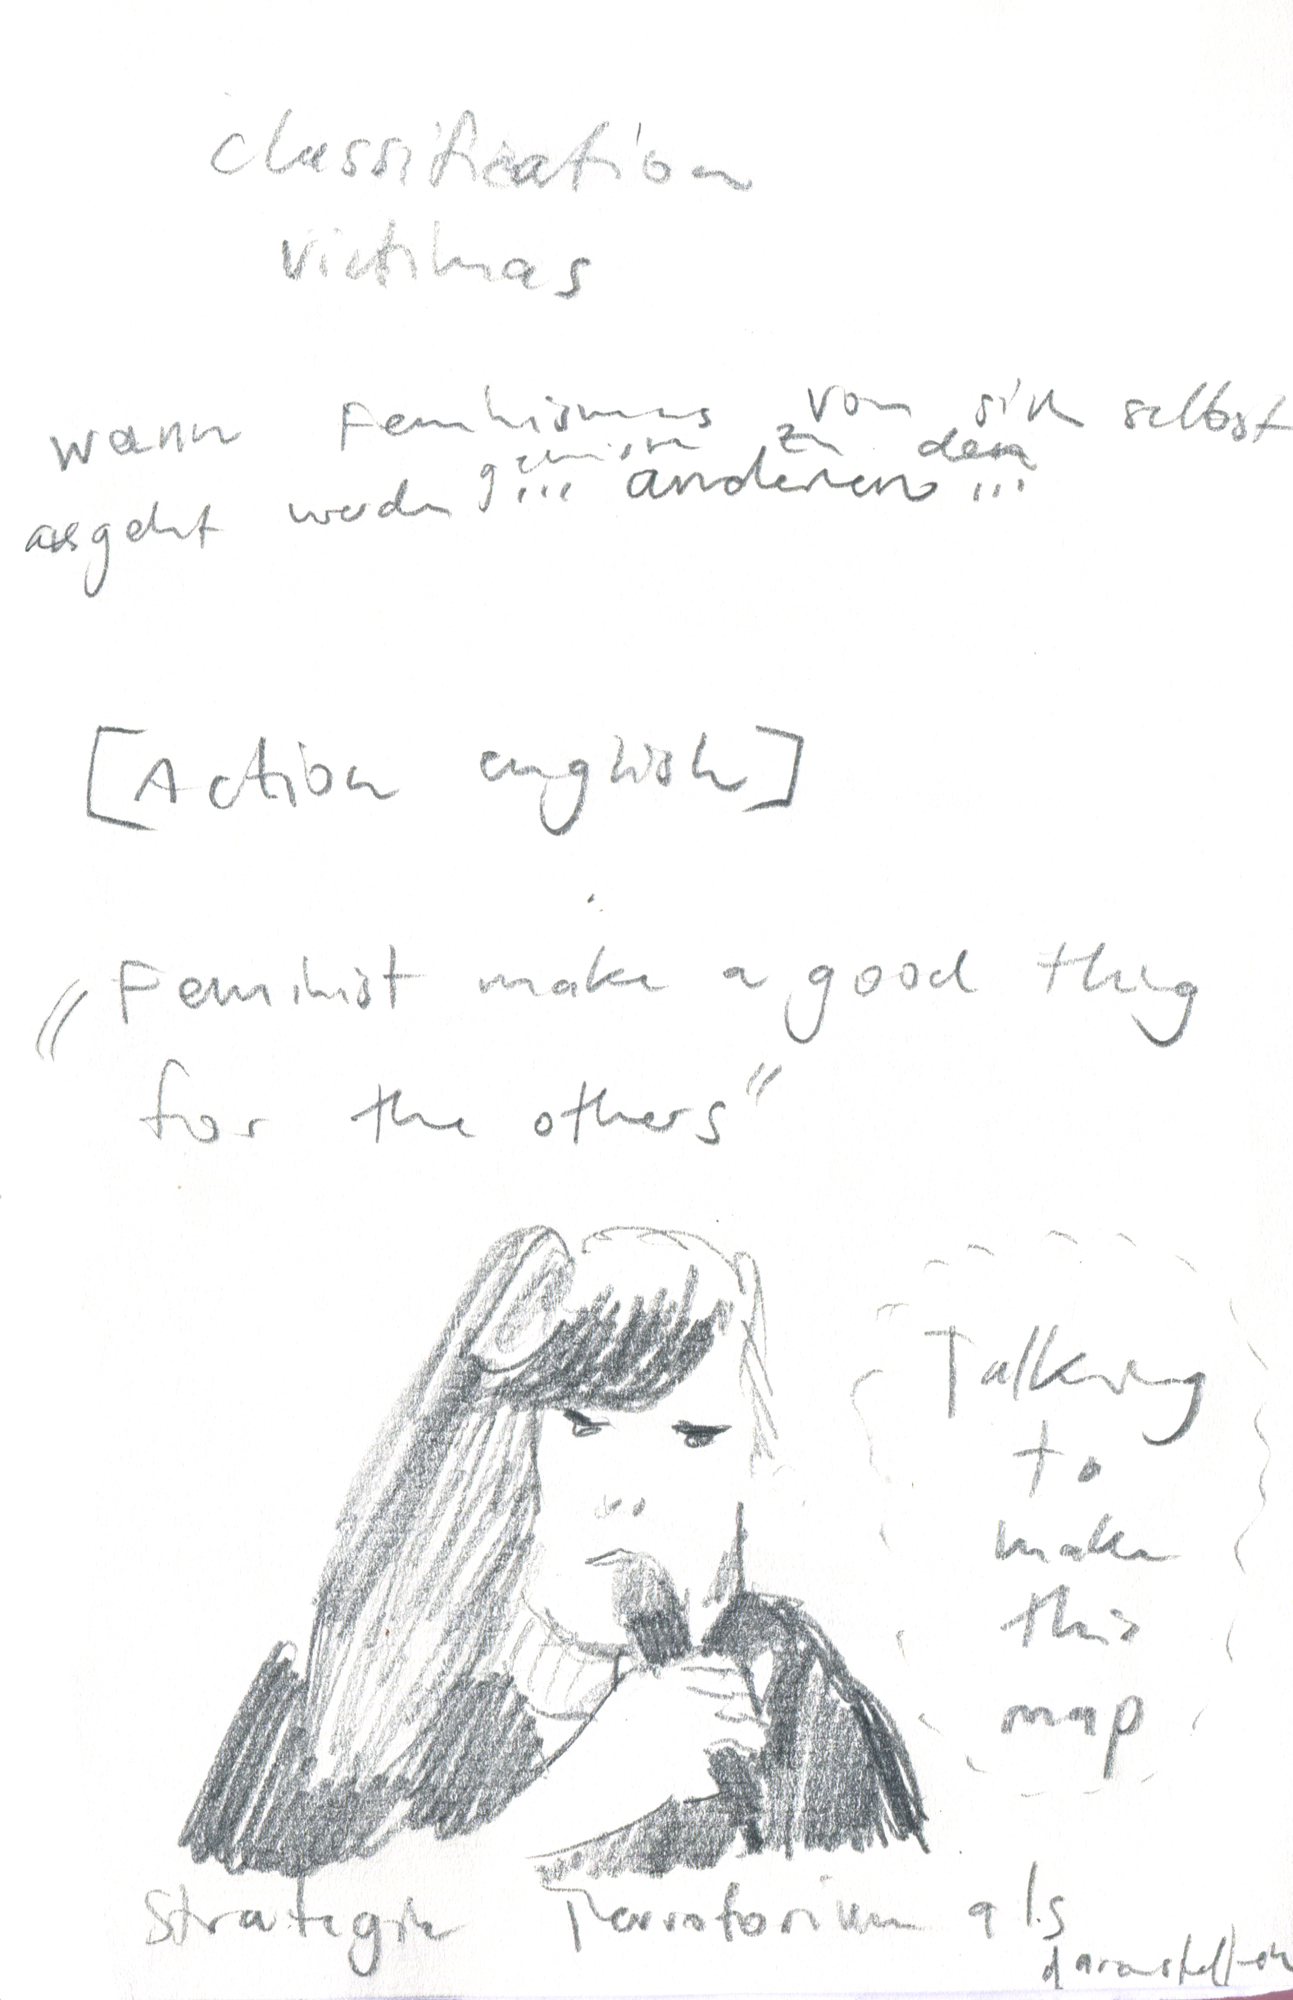 classification
victimas
wann Feminismus von sich selbst
ausgeht werden g... zu den
... anderen ...
[Action english]
"Feminist make a good thing
for the others"
Talking
to
make
this
map
Strategie Territorium als